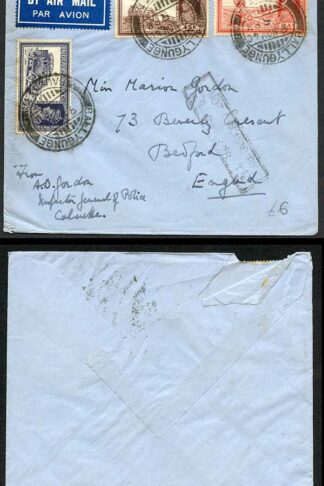 BY AIR MAIL
PAR AVION
BALLYGUNGE
BALLYGUNGE
Miss Marion Gordon
73 Beverly Crescent
Bedford
England
From
A.D. Gordon
Inspector General of Police
Calcutta.
£6